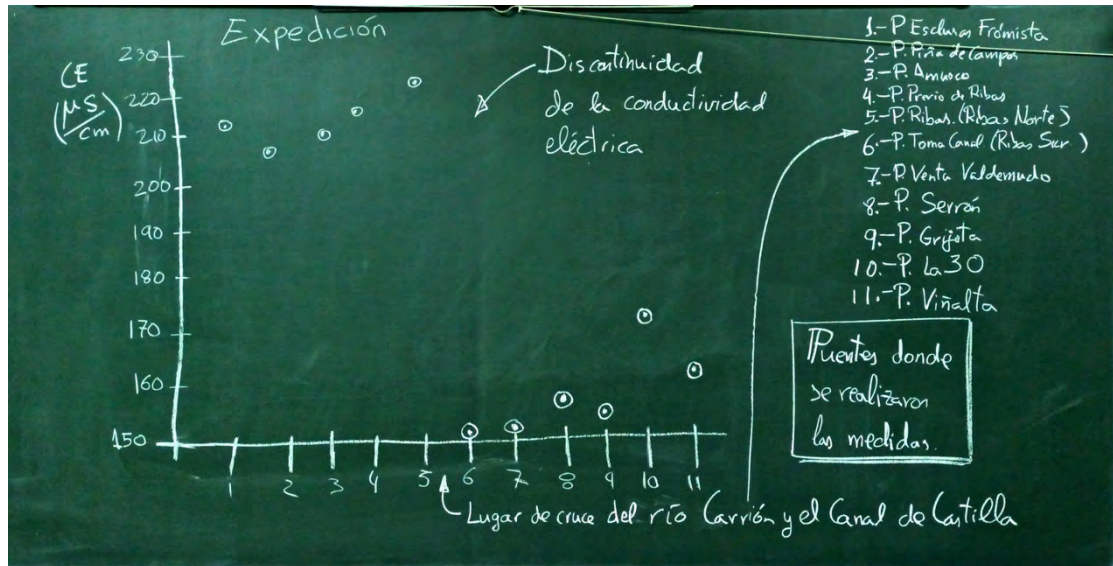 Expedición
CE
(μS/cm)
230
220
210
200
190
180
170
160
150
1 2 3 4 5 6 7 8 9 10 11
Discontinuidad
de la conductividad
eléctrica
Lugar de cruce del río Carrión y el Canal de Castilla
1.-P Esclusas Frómista
2.-P. Piña de Campos
3.-P. Amusco
4.-P. Previo de Ribas
5.-P. Ribas. (Ribas Norte)
6.-P. Toma Canal (Ribas Sur)
7.-P. Venta Valdemudo
8.-P. Serrón
9.-P. Grijota
10.-P. La 30
11.-P. Viñalta
Puentes donde
se realizaron
las medidas.